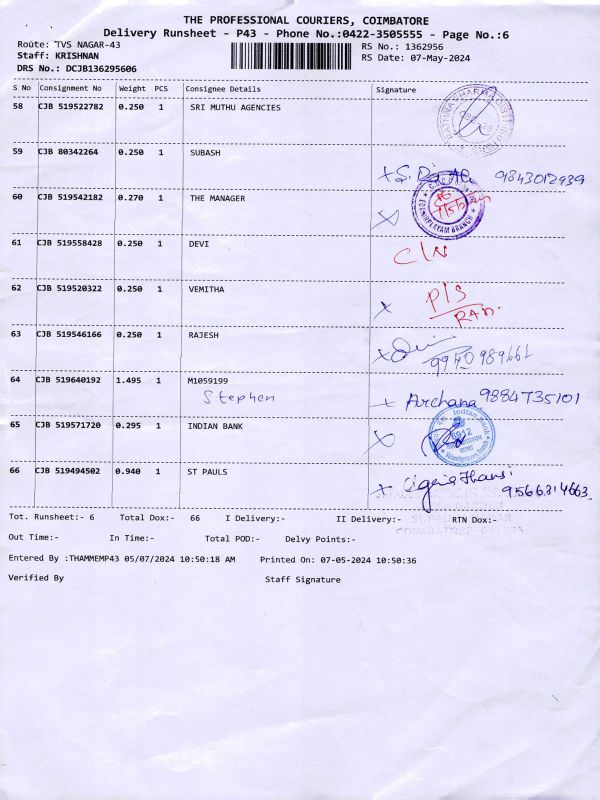 THE PROFESSIONAL COURIERS, COIMBATORE
Delivery Runsheet - P43 - Phone No.:0422-3505555 - Page No.:6
Route: TVS NAGAR-43 RS No.: 1362956
Staff: KRISHNAN RS Date: 07-May-2024
DRS No.: DCJB136295606
S No Consignment No Weight PCS Consignee Details Signature
58 CJB 519522782 0.250 1 SRI MUTHU AGENCIES
59 CJB 80342264 0.250 1 SUBASH
9843012939
60 CJB 519542182 0.270 1 THE MANAGER
BRANCH
61 CJB 519558428 0.250 1 DEVI
C/N
62 CJB 519520322 0.250 1 VEMITHA
P/S
63 CJB 519546166 0.250 1 RAJESH
64 CJB 519640192 1.495 1 M1059199
Stephen Archana 9884735101
65 CJB 519571720 0.295 1 INDIAN BANK
Indian Bank
66 CJB 519494502 0.940 1 ST PAULS
9566314663
Tot. Runsheet:- 6 Total Dox:- 66 I Delivery:- II Delivery:- RTN Dox:-
Out Time:- In Time:- Total POD:- Delvy Points:-
Entered By :THAMMEMP43 05/07/2024 10:50:18 AM Printed On: 07-05-2024 10:50:36
Verified By Staff Signature